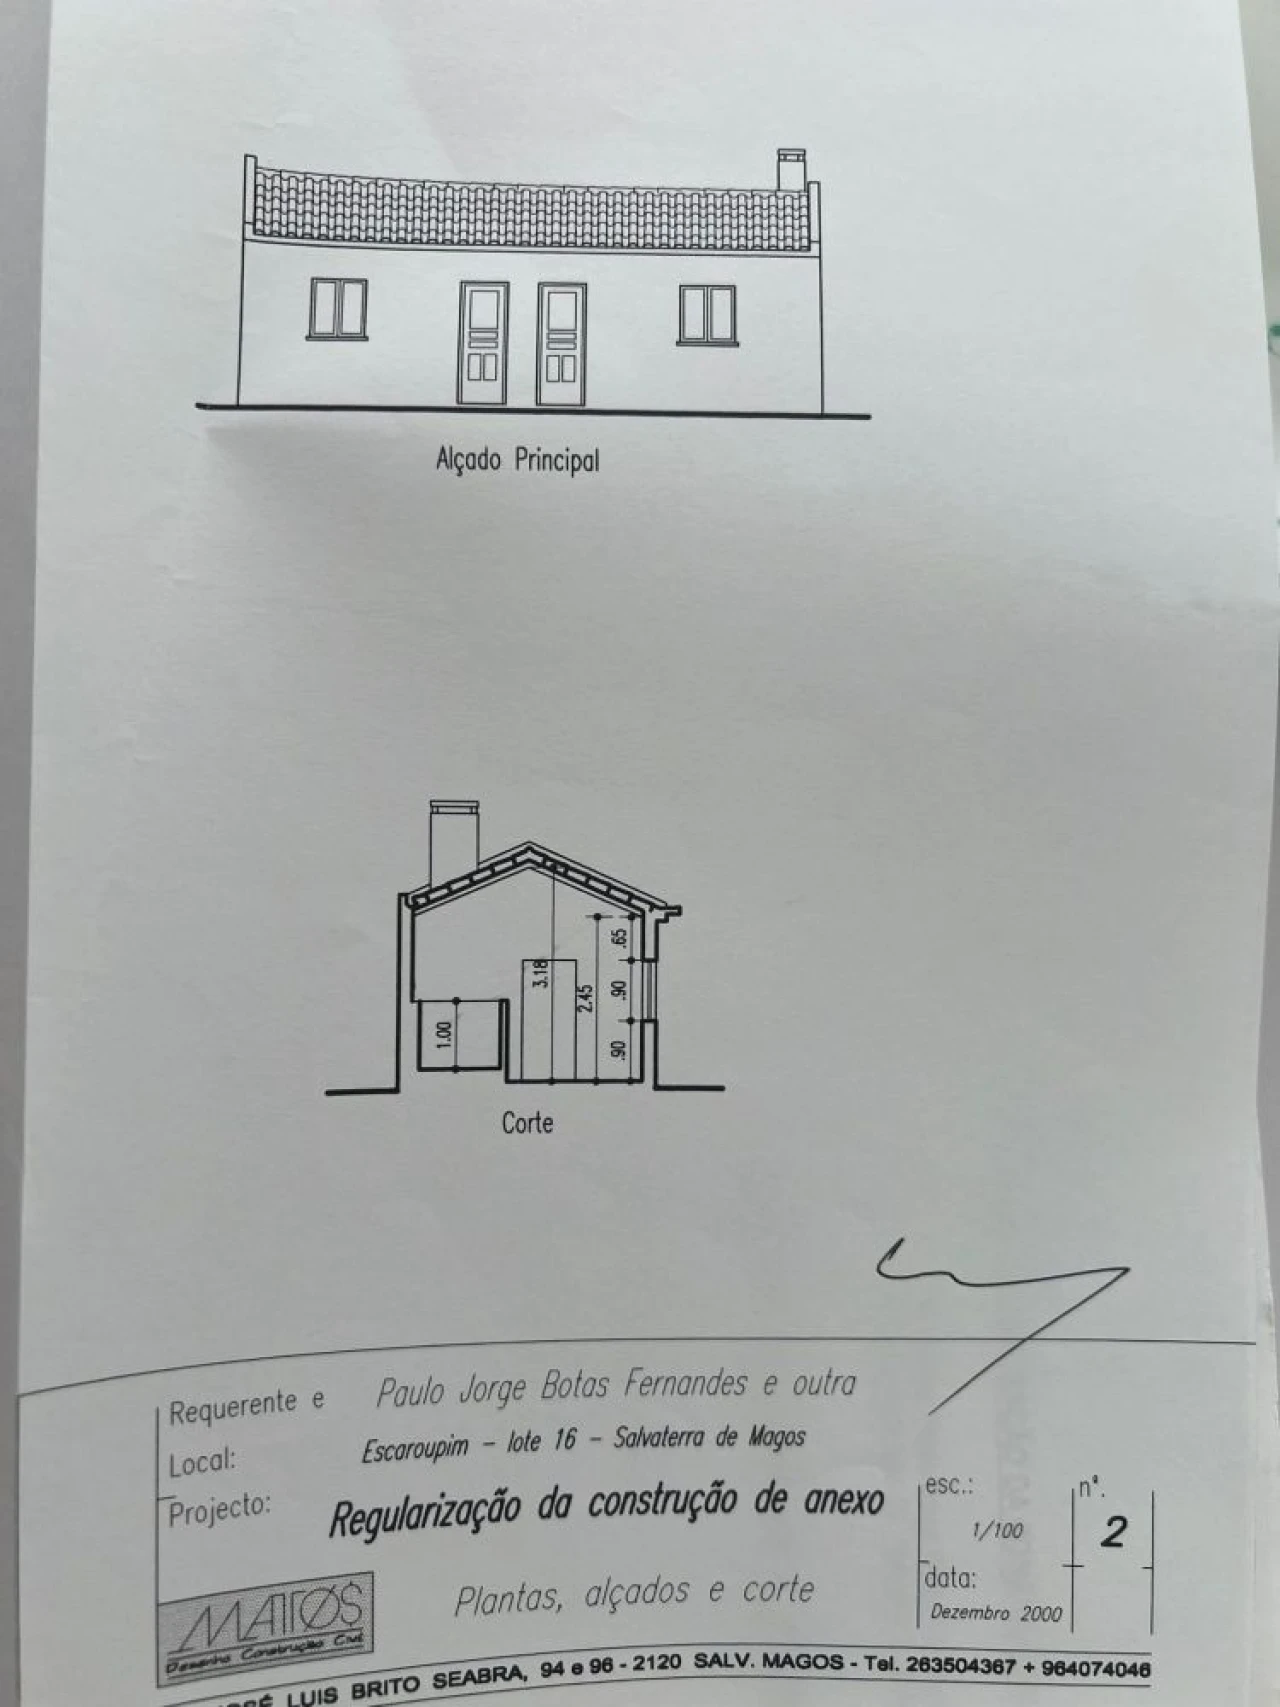 Alçado Principal
.65
3.18
2.45
.90
1.00
.90
Corte
Requerente e Paulo Jorge Botas Fernandes e outra
Local: Escaroupim - lote 16 - Salvaterra de Magos
Projecto: Regularização da construção de anexo
esc.: 1/100
nº. 2
Plantas, alçados e corte
data: Dezembro 2000
MATOS
Desenho Construção Civil
LUIS BRITO SEABRA, 94 e 96 - 2120 SALV. MAGOS - Tel. 263504367 + 964074046